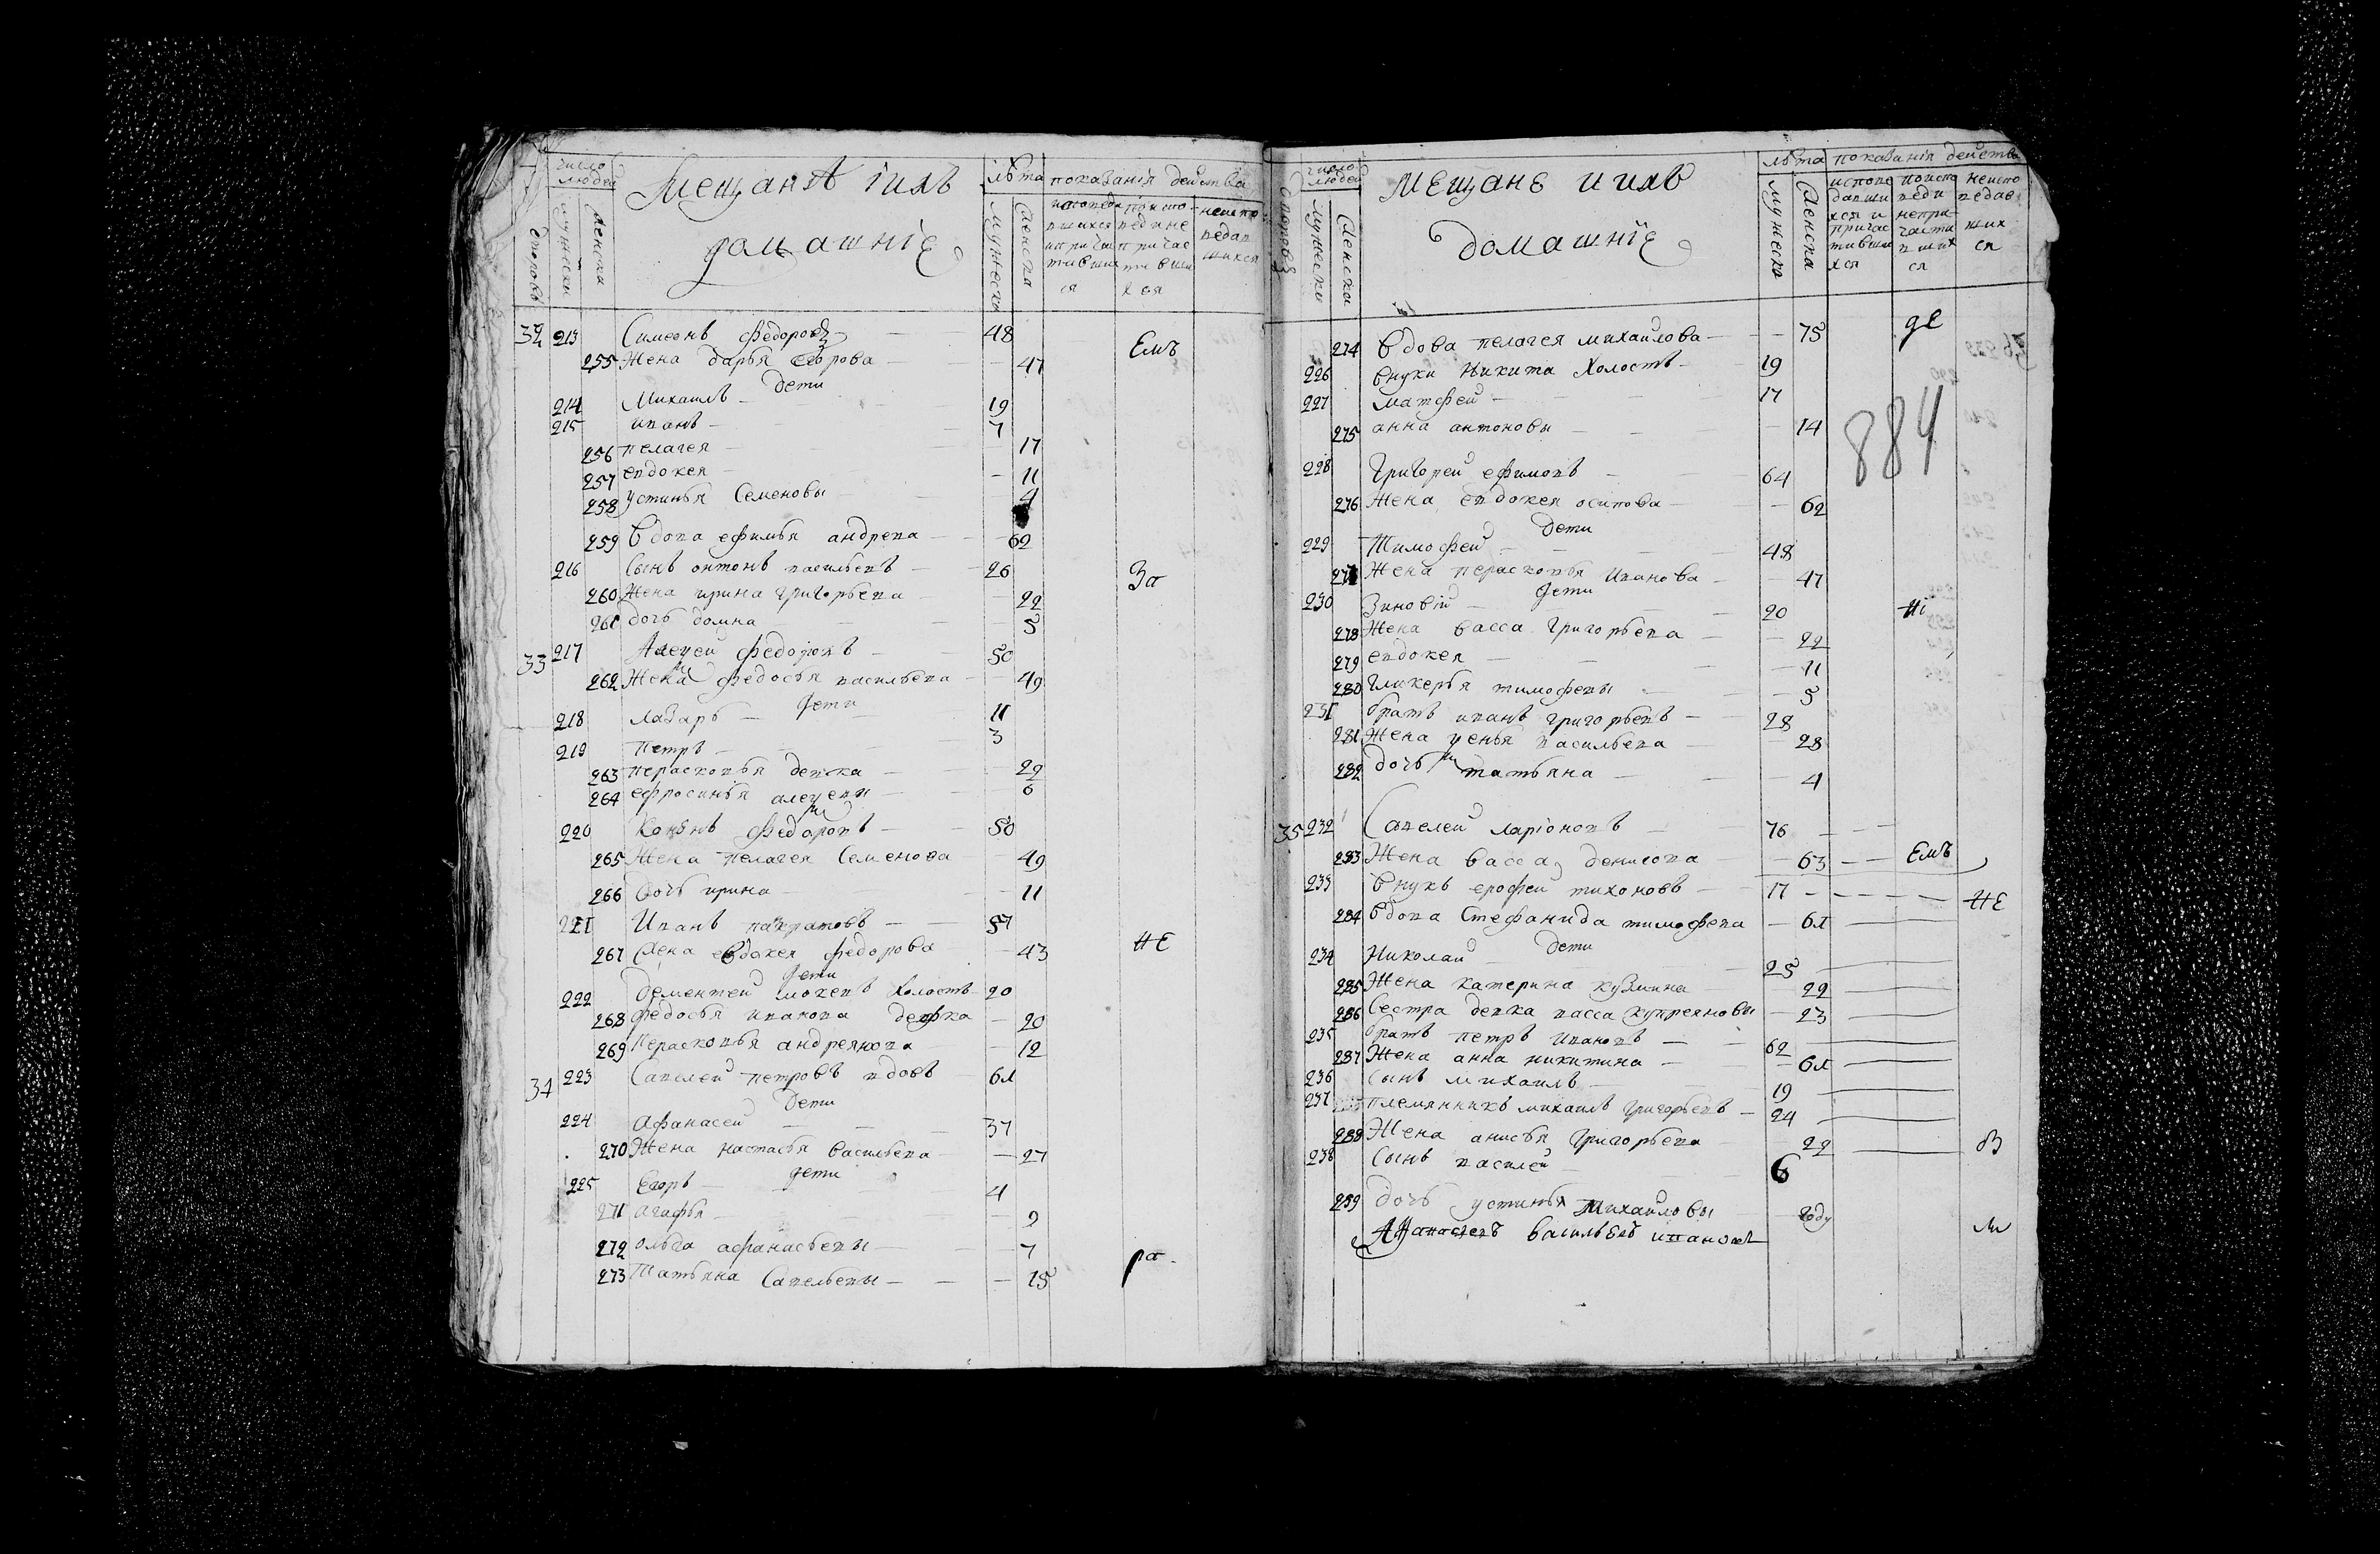 число людей
Мещанѣ iихъ домашнiе
лѣта
показанiя действа
дворовъ
мужески
женска
мужеска
женска
32 213 Симеонъ федоровъ 48
255 Жена дарья егорова 47
Емъ
дети
214 Михаилъ 19
215 иванъ 7
256 пелагея 17
257 евдокея 11
258 устинья Семеновы 4
259 вдова ефимья андрева 62
216 Сынъ антонъ васильевъ 26
За
260 Жена ирина григорьева 22
261 дочь домна 5
33 217 федоровъ 50
262 Жена федосья васильева 49
дети
218 лазарь 11
219 Петръ 3
263 перасковья девка 22
264 ефросинья 6
220 федоровъ 50
265 Жена пелагея Семенова 49
266 Дочь ирина 11
221 Иванъ панкратовъ 57
267 Жена евдокея федорова 43
НЕ
дети
222 дементей холостъ 20
268 федосья иванова девка 20
269 Пераскопья андреянова 12
34 223 Савелей петровъ вдовъ 61
дети
224 Афанасей 37
270 Жена настасья васильева 27
дети
225 Егоръ 4
271 агафья 9
272 ольга афанасьевы 7
273 Татьяна Савельевы 15
ра
число людей
мещане и ихъ домашнiе
лѣта
показанiя действа
дворовъ
мужески
женски
мужеско
женска
исповедавшихся и причастившихся
неисповедавшихся
274 вдова пелагея михаилова 75
де
226 внуки Никита холостъ 19
227 матфей 17
275 анна антоновы 14
884
228 Григорей ефимовъ 64
276 Жена евдокея осипова 62
дети
229 Тимофей 48
277 Жена пераскопья иванова 47
дети
230 Зиновiй 20
Нi
278 Жена васса григорьева 22
279 евдокея 11
280 гликерья тимофевы 5
231 братъ иванъ григорьевъ 28
281 Жена васильева 28
282 дочь татьяна 4
35 232 Савелей ларiоновъ 76
283 Жена васса денисова 63
Емъ
233 внукъ ерофей тихоновъ 17
НЕ
284 вдова Стефанида тимофева 61
дети
234 Николай 25
285 Жена катерина кузмина 22
286 Сестра девка васса купреяновы 23
235 братъ петръ ивановъ 62
287 Жена анна никитина 61
236 Сынъ михаилъ 19
237 племянникъ михаилъ григорьевъ 24
288 Жена анисья григорьева 22
238 Сынъ василей 6
289 дочь устинья михаиловы году
васильевъ